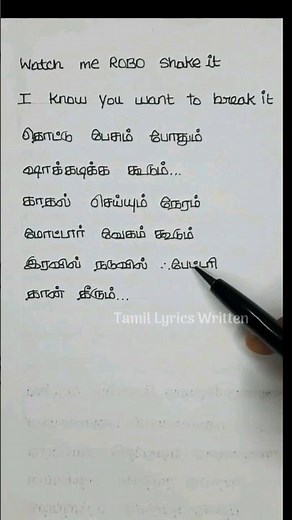 Watch me ROBO shake it
I know you want to break it
தொட்டு பேசும் போதும்
ஷாக்கடிக்க கூடும்...
காதல் செய்யும் நேரம்
மோட்டார் வேகம் கூடும்
இரவில் நடுவில் ஃபேட்டரி
தான் தீரும்...
Tamil Lyrics Written